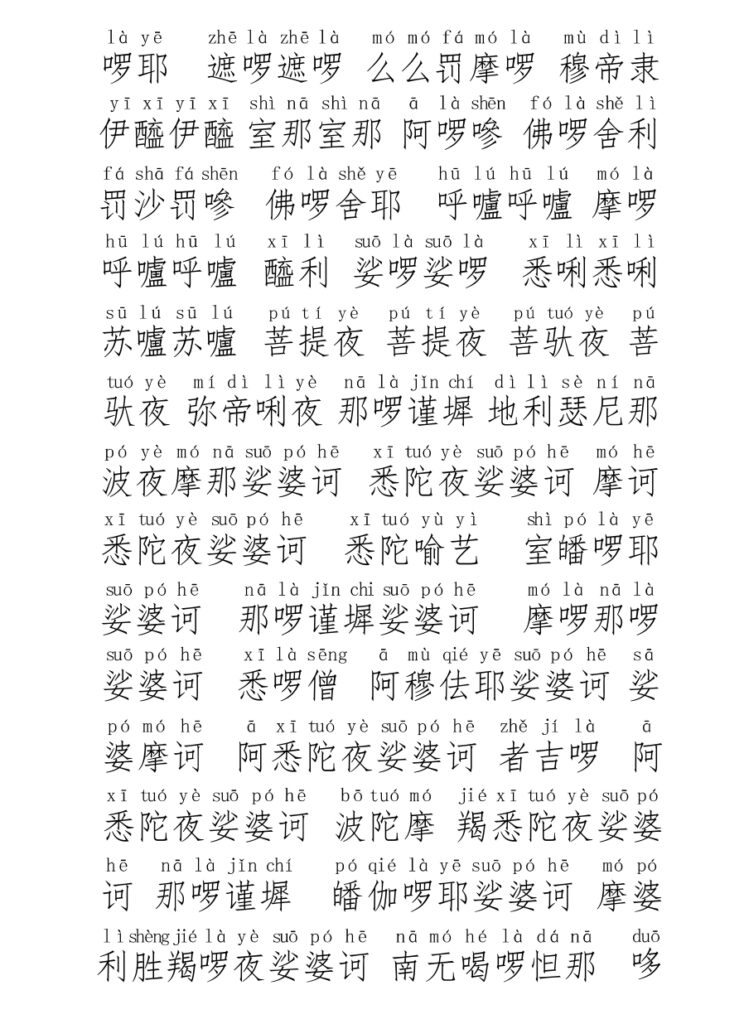 là yē zhē là zhē là mó mó fá mó là mù dì lì
啰耶 遮啰遮啰 么么罚摩啰 穆帝隶
yī xī yī xī shì nā shì nā ā là shēn fó là shě lì
伊醯伊醯 室那室那 阿啰嘇 佛啰舍利
fá shā fá shēn fó là shě yē hū lú hū lú mó là
罚沙罚嘇 佛啰舍耶 呼嚧呼嚧 摩啰
hū lú hū lú xī lì suō là suō là xī lì xī lì
呼嚧呼嚧 醯利 娑啰娑啰 悉唎悉唎
sū lú sū lú pú tí yè pú tí yè pú tuó yè pú
苏嚧苏嚧 菩提夜 菩提夜 菩驮夜 菩
tuó yè mí dì lì yè nā là jǐn chí dì lì sè ní nā
驮夜 弥帝唎夜 那啰谨墀 地利瑟尼那
pó yè mó nā suō pó hē xī tuó yè suō pó hē mó hē
波夜摩那娑婆诃 悉陀夜娑婆诃 摩诃
xī tuó yè suō pó hē xī tuó yù yì shì pó là yē
悉陀夜娑婆诃 悉陀喻艺 室皤啰耶
suō pó hē nā là jǐn chi suō pó hē mó là nā là
娑婆诃 那啰谨墀娑婆诃 摩啰那啰
suō pó hē xī là sēng ā mù qié yē suō pó hē sā
娑婆诃 悉啰僧 阿穆佉耶娑婆诃 娑
pó mó hē ā xī tuó yè suō pó hē zhě jí là ā
婆摩诃 阿悉陀夜娑婆诃 者吉啰 阿
xī tuó yè suō pó hē bō tuó mó jié xī tuó yè suō pó
悉陀夜娑婆诃 波陀摩 羯悉陀夜娑婆
hē nā là jǐn chí pó qié là yē suō pó hē mó pó
诃 那啰谨墀 皤伽啰耶娑婆诃 摩婆
lì shèng jié là yè suō pó hē nā mó hé là dá nā duō
利胜羯啰夜娑婆诃 南无喝啰怛那 哆